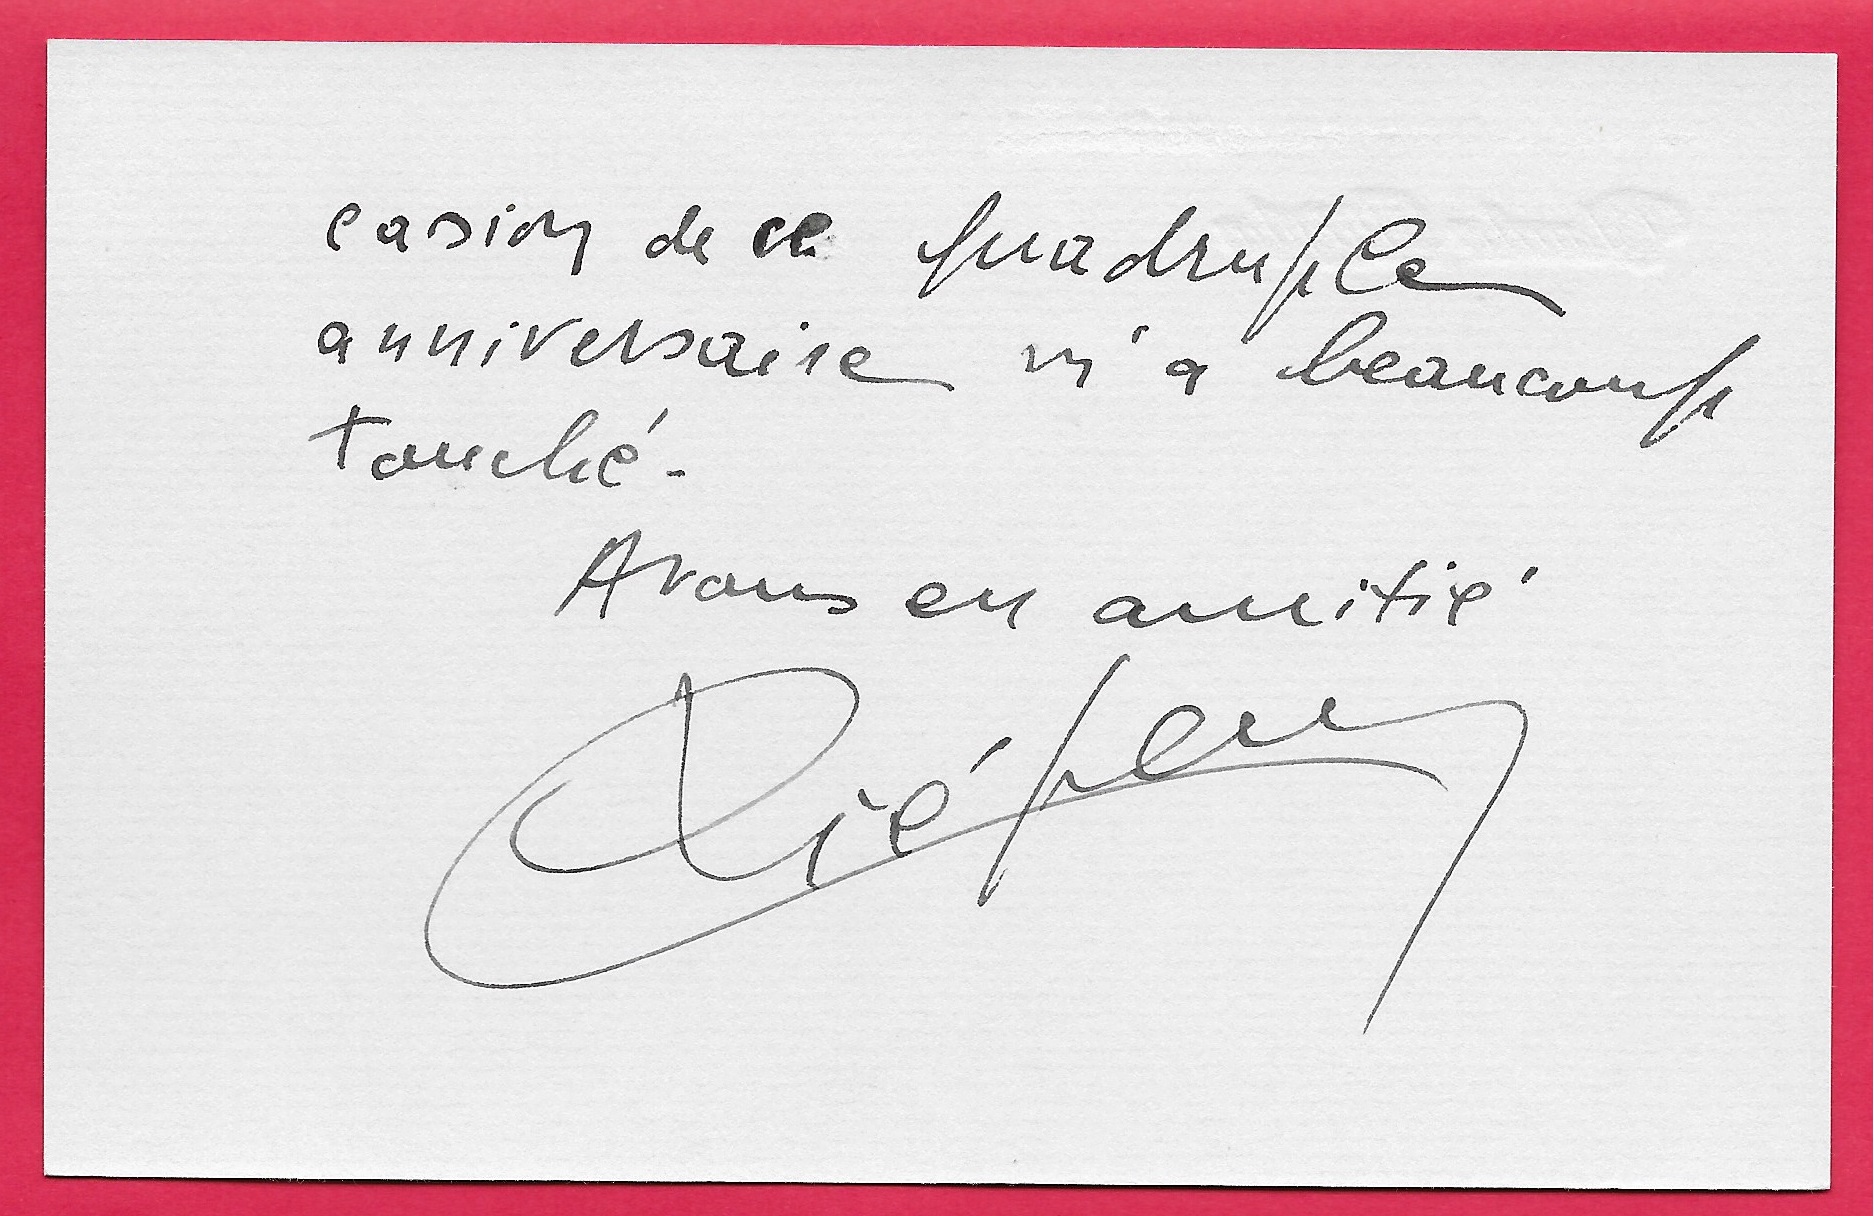 casion de ce quadruple
anniversaire m'a beaucoup
touché.
A vous en amitié